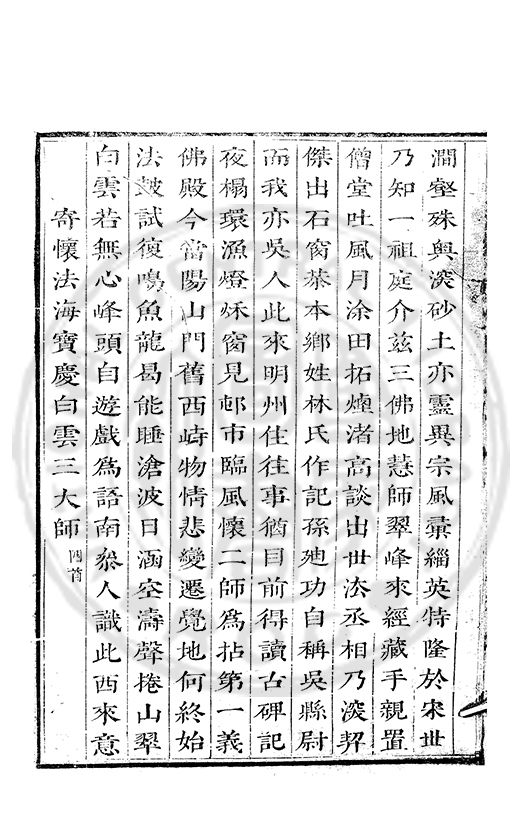 澗壑殊輿深砂土亦靈異宗風彙緇英特隆於宋世
乃知一祖庭介茲三佛地慧師翠峰來經藏手親置
僧堂吐風月涂田拓煙渚高談出世法丞相乃深契
傑出石窗恭本鄉姓林氏作記孫逈功自稱吳縣尉
而我亦吳人此來明州住往事猶目前得讀古碑記
夜榻環漁燈秌窗見邨市臨風懷二師為拈第一義
佛殿今當陽山門舊西峙物情悲變遷覺地何終始
法鼓試復鳴魚龍曷能睡滄波日涵空濤聲捲山翠
白雲若無心峰頭自遊戲為語南叅人識此西來意
寄懷法海寶慶白雲三大師四首